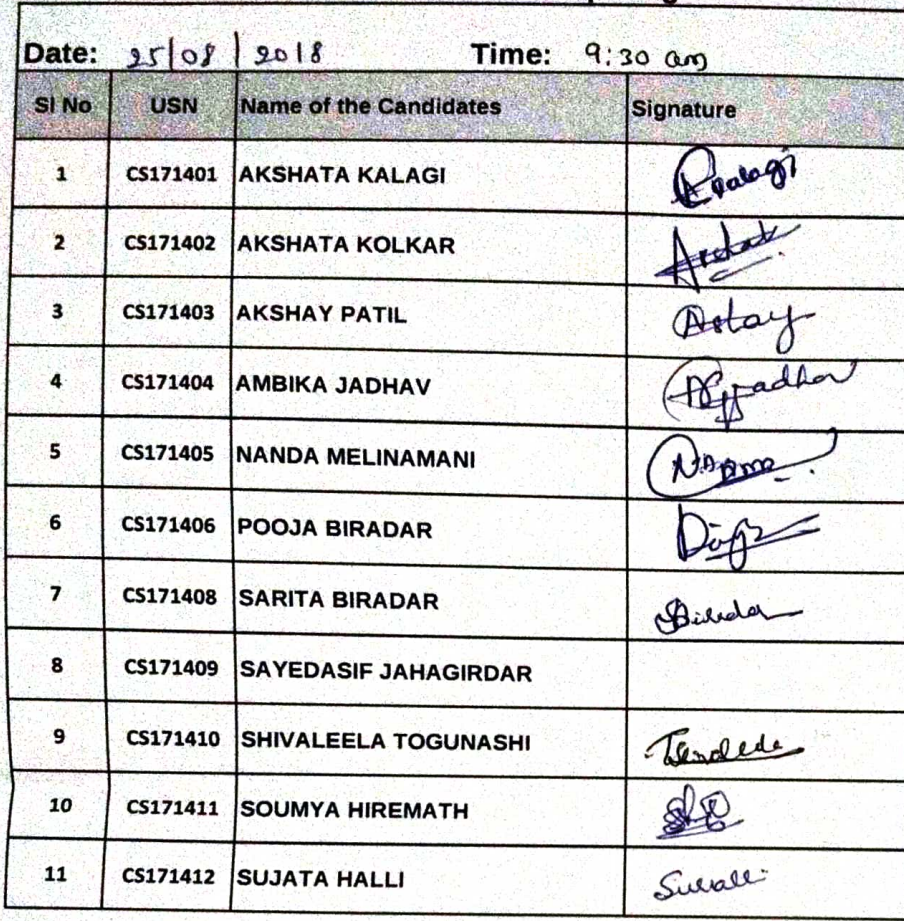 Date: 25/08/2018 Time: 9:30 am
Sl No USN Name of the Candidates Signature
1 CS171401 AKSHATA KALAGI Akalagi
2 CS171402 AKSHATA KOLKAR
3 CS171403 AKSHAY PATIL
4 CS171404 AMBIKA JADHAV
5 CS171405 NANDA MELINAMANI
6 CS171406 POOJA BIRADAR
7 CS171408 SARITA BIRADAR
8 CS171409 SAYEDASIF JAHAGIRDAR
9 CS171410 SHIVALEELA TOGUNASHI
10 CS171411 SOUMYA HIREMATH
11 CS171412 SUJATA HALLI